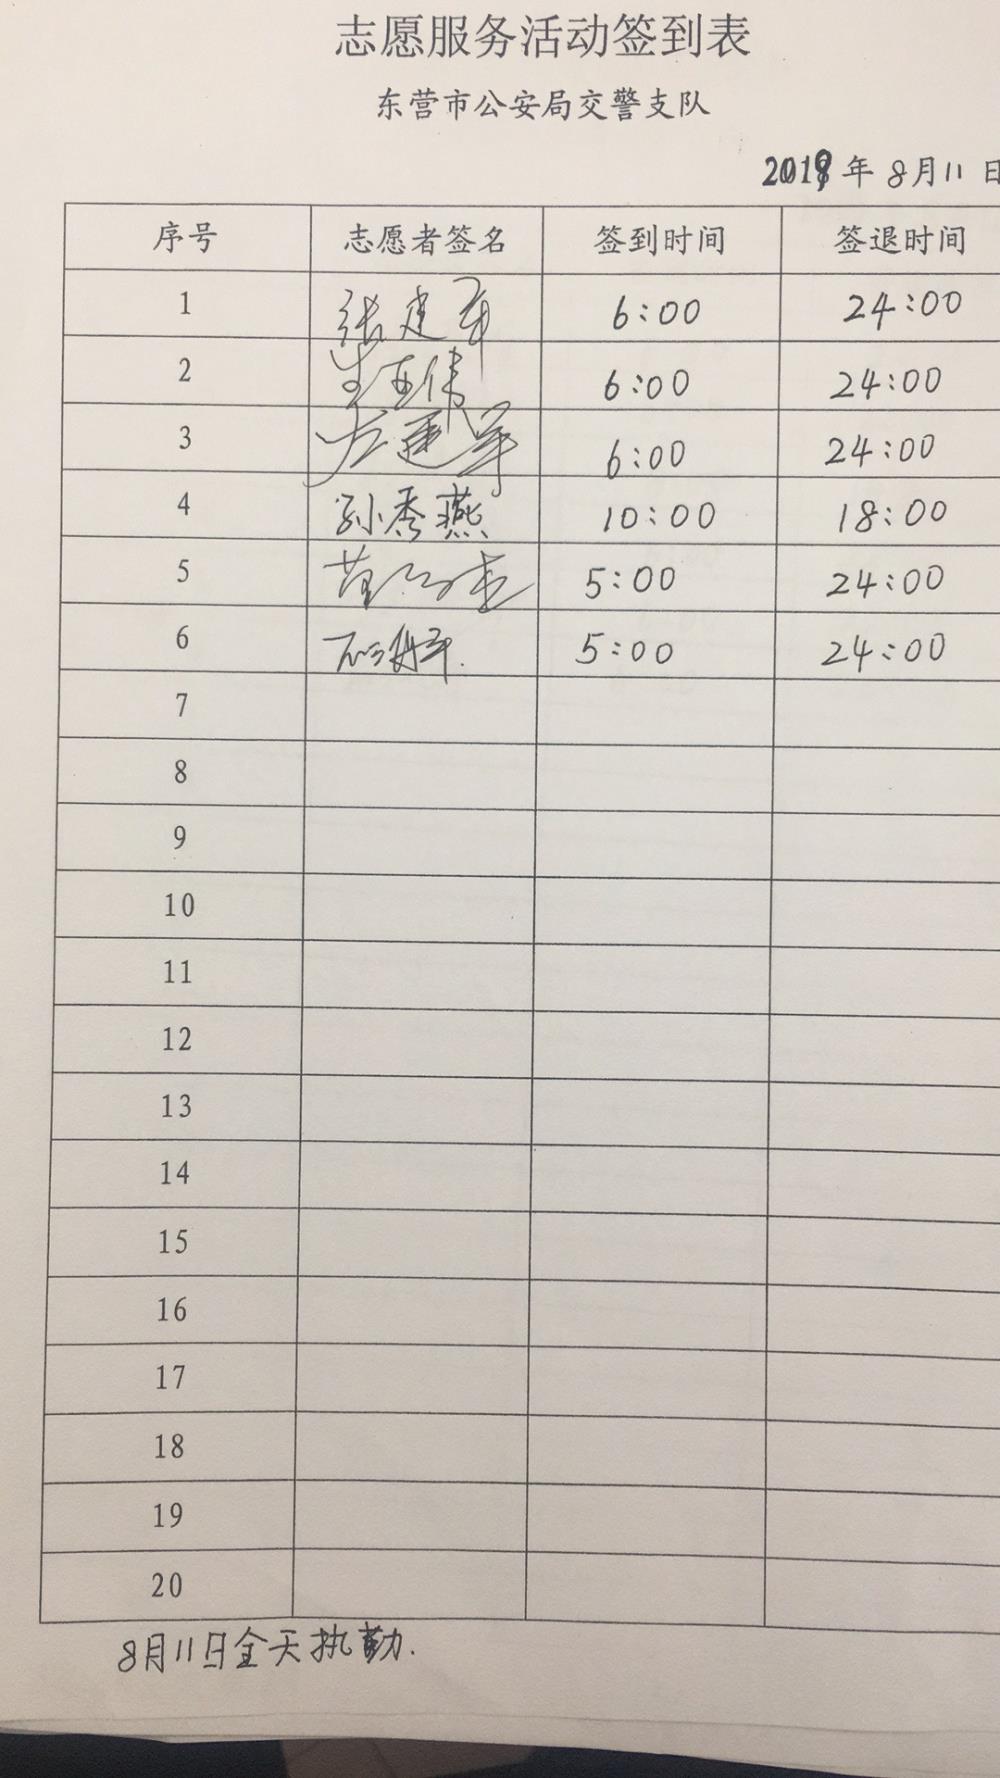 志愿服务活动签到表
东营市公安局交警支队
2019年8月11日
序号 志愿者签名 签到时间 签退时间
1 张建军 6:00 24:00
2 6:00 24:00
3 左建军 6:00 24:00
4 孙秀燕 10:00 18:00
5 5:00 24:00
6 5:00 24:00
7
8
9
10
11
12
13
14
15
16
17
18
19
20
8月11日全天执勤.